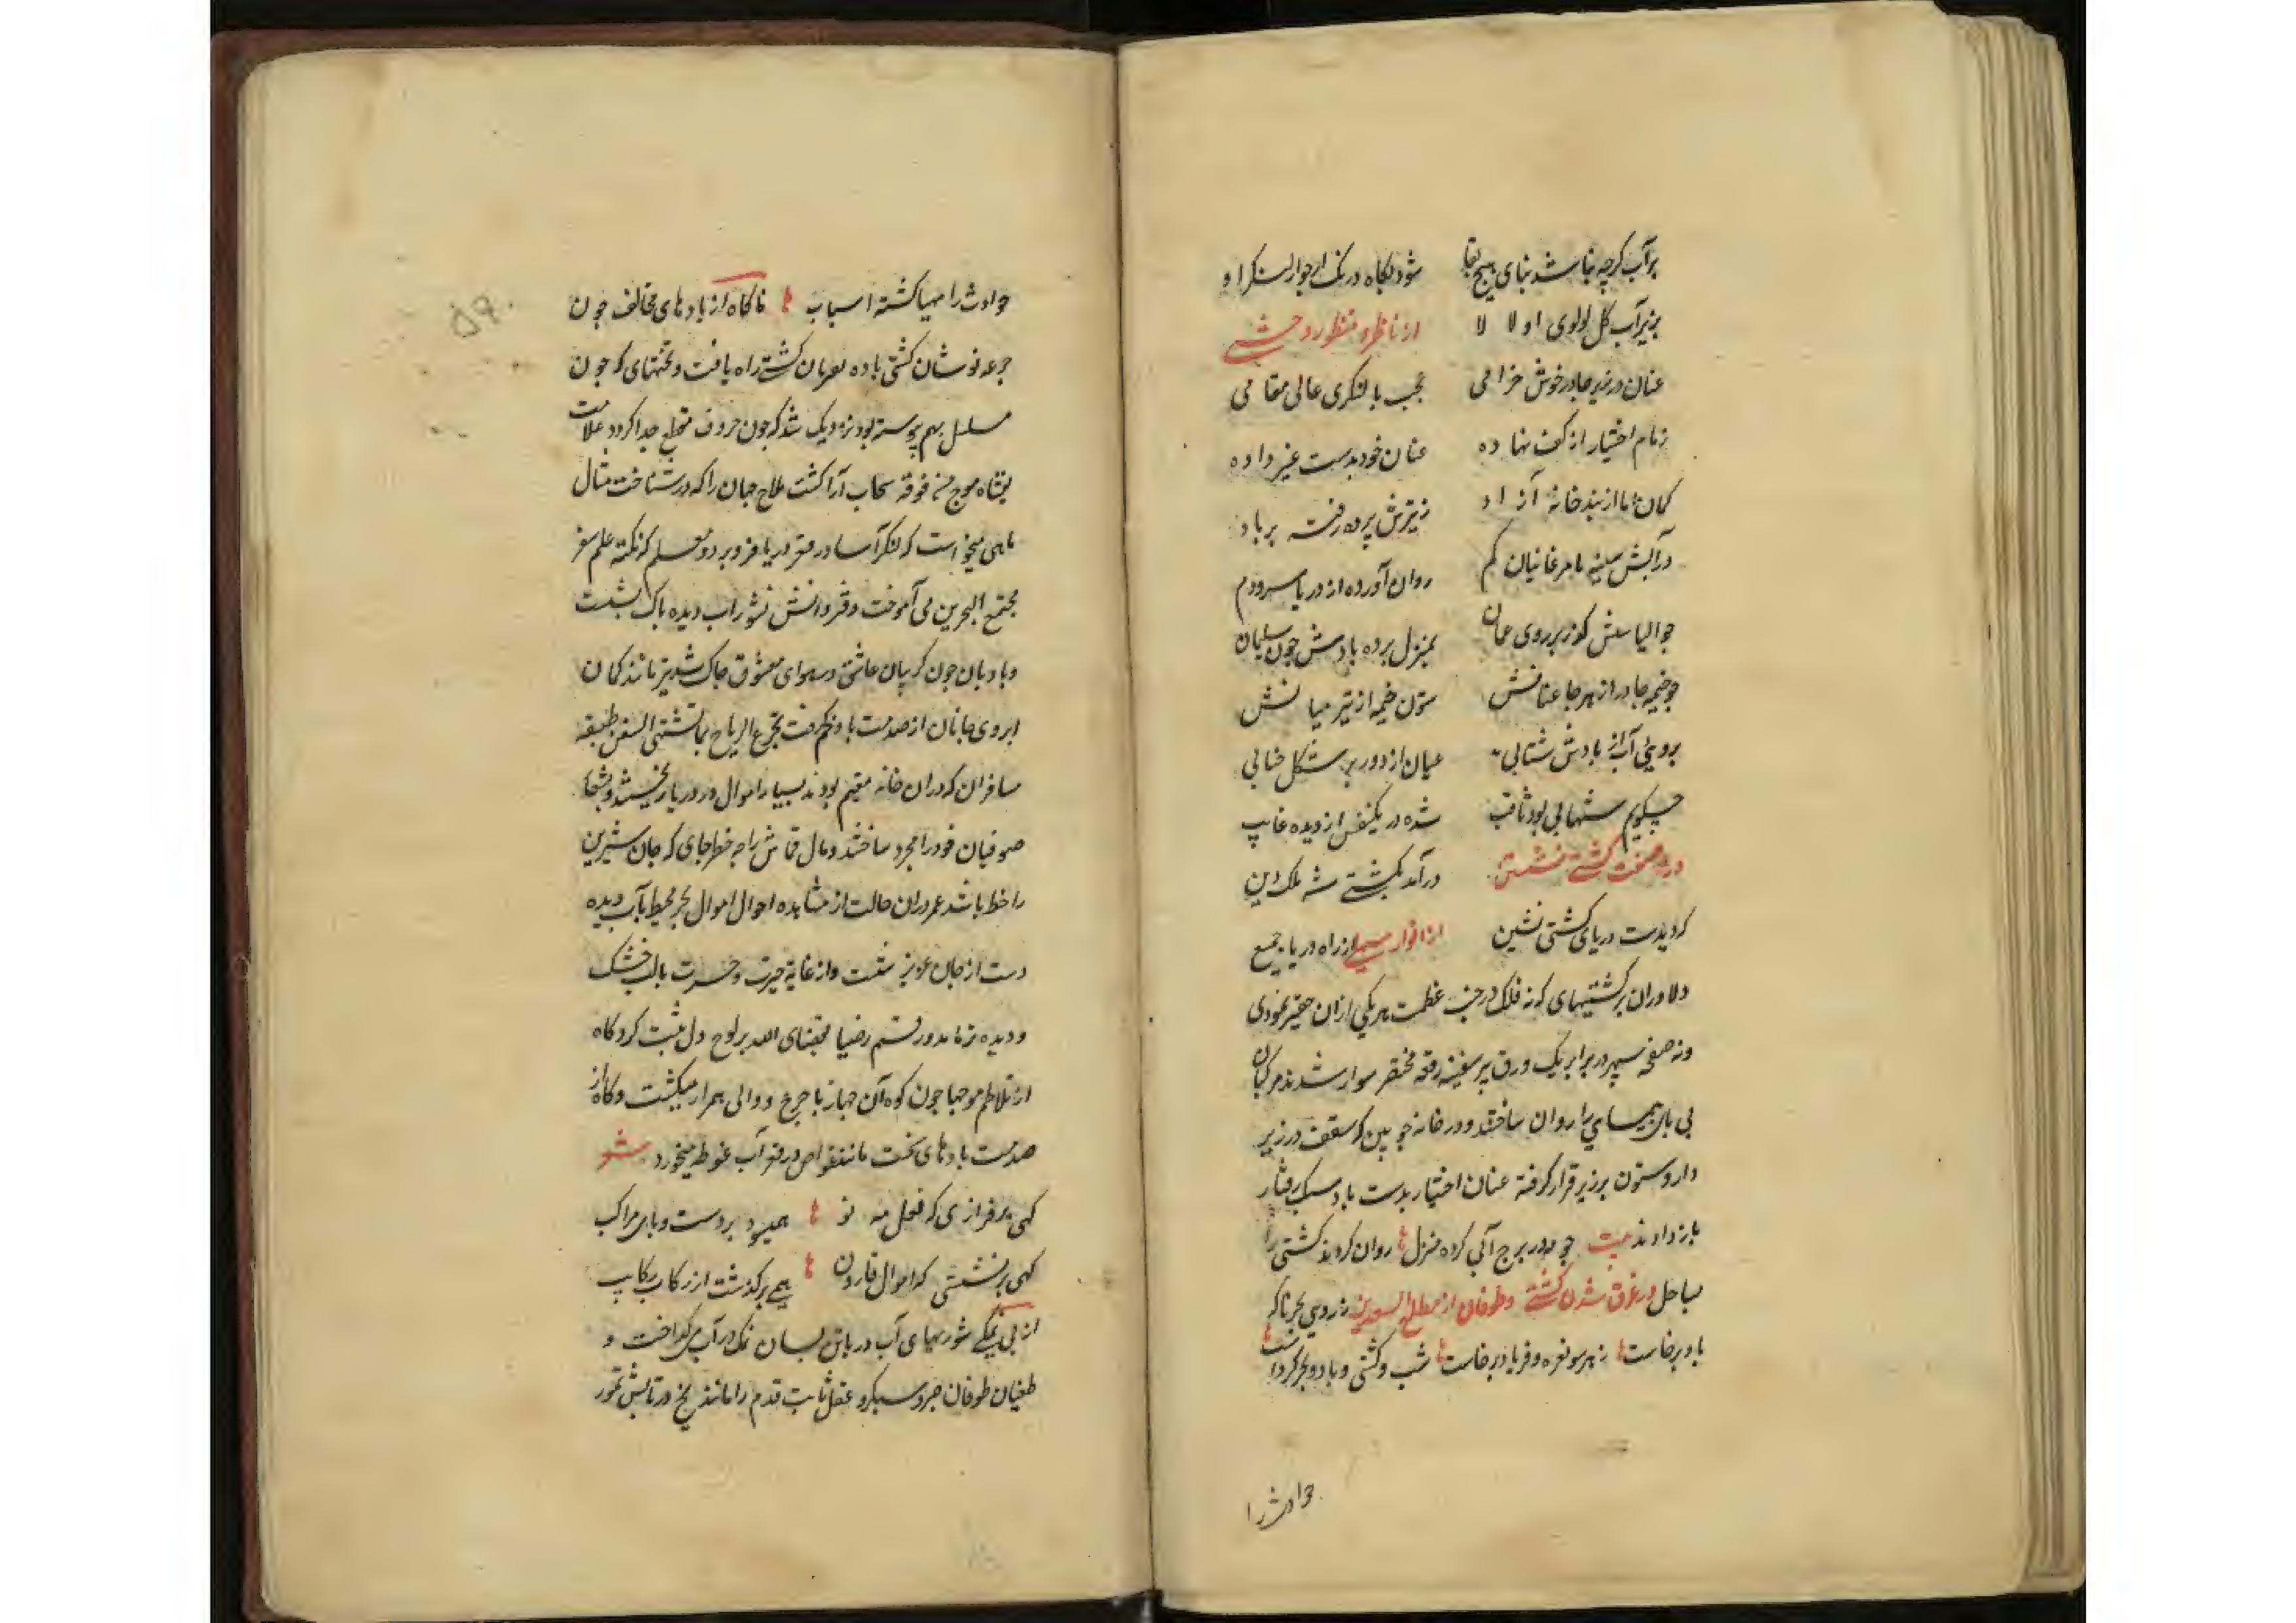 بر آب کرچه نباشد بنای هیچ بقا شود نکاه در نک از جوار لنکر او
بزیر آب کل لولوی او لا لا از ناظر و منظور وحشی
عنان در زیر چادر خوش خرامی عجب با لنکری عالی مقامی
زمام اختیار از کف نهاده عنان خود بدست غیر داده
کمان اما از بند خانه آزاد ز تیرش پرده رفته بر باد
در آبش سینه با مرغابیان کم روان آورده از دریا سر و دم
چو الیاسش کذر بر روی عمان بمنزل برده بادش چون سلیمان
چو خیمه چادر از هر جا عنانش ستون خیمه از تیر میانش
بروی آب از بادش شتابی عیان از دور بر شکل حبابی
چکویم شهابی بود ثاقب شده در یکنفس از دیده غایب
در صفت کشتی نشستن درآمد بکشتی شه ملک دین
که دیدست دریای کشتی نشین از انوار سهیلی از راه دریا جمیع
دلاوران بر کشتیهای که نه فلک در جنب عظمت هر یکی ازان حقیر نمودی
و نه صفحه سپهر در برابر یک ورق پر سفینه رقعه مختصر سوار شدند مرکبان
بی پای پیمای را روان ساختند و در خانه چوبین که سقف در زیر
دارد و ستون بر زیر قرار کرفته عنان اختیار بدست باد سبک رفتار
باز دادند بیت چو مه در برج آبی کرده منزل روان کردند کشتی را
بساحل در غرق شدن کشتی و طوفان از مطلع السعدین ز روی بحر ناکه
باد برخاست ز هر سو نعره و فریاد برخاست شب و کشتی و باد و بحر کرداب
حوادث را
۵۹۰
حوادث را مهیا کشته اسباب ناکاه از بادهای مخالف چون
جرعه نوشان کشتی باده بعربان کشتی راه یافت و تختهای که چون
مسلسل بهم پیوسته بود نزدیک شد که چون حروف مقطع جدا کردد علامت
یغشاه موج من فوقه سحاب آرا کشت ملاح جهان را که در شناخت مثال
ماهی میخواست که لنکر آسا در قعر دریا فرو برد و معلم که نکته علم سفر
مجتمع البحرین می آموخت دفتر دانش بشوراب دیده پاک بشست
و بادبان چون کریبان عاشق در هوای معشوق چاک شد تیر مانند کمان
ابروی جانان از صدمت باد خم کرفت تجری الریاح بما تشتهی السفن طبقه
مسافران که دران خانه مقیم بودند بسیار اموال در دریا ریختند و بشعار
صوفیان خود را مجرد ساختند و مال قماش را چه خطر جای که جان شیرین
را خطر باشد عمر دران حالت از مشاهده احوال اموال بحر محیط بآب دیده
دست از جان عزیز شست و از غایة حیرت و حسرت با لب خشک
و دیده تر ماند و رقم رضینا بقضای الله بر لوح دل ثبت کرد کاه
از تلاطم موجها چون کوه آن جهاز با چرخ دوالی همراز میکشت و کاه از
صدمت بادهای سخت مانند غواص در قعر آب غوطه میخورد شعر
کهی بر فرازی که نعل مه نو همیسود بر دست و پای مراکب
کهی بر نشستی که اموال قارون همی بر کذشت از رکاب رکایب
از بی نمکی شوریهای آب دریا تن بسان نمک در آب میکداخت و
طغیان طوفان صبر و سبکرو عقل ثابت قدم را مانند یخ در تابش تموز